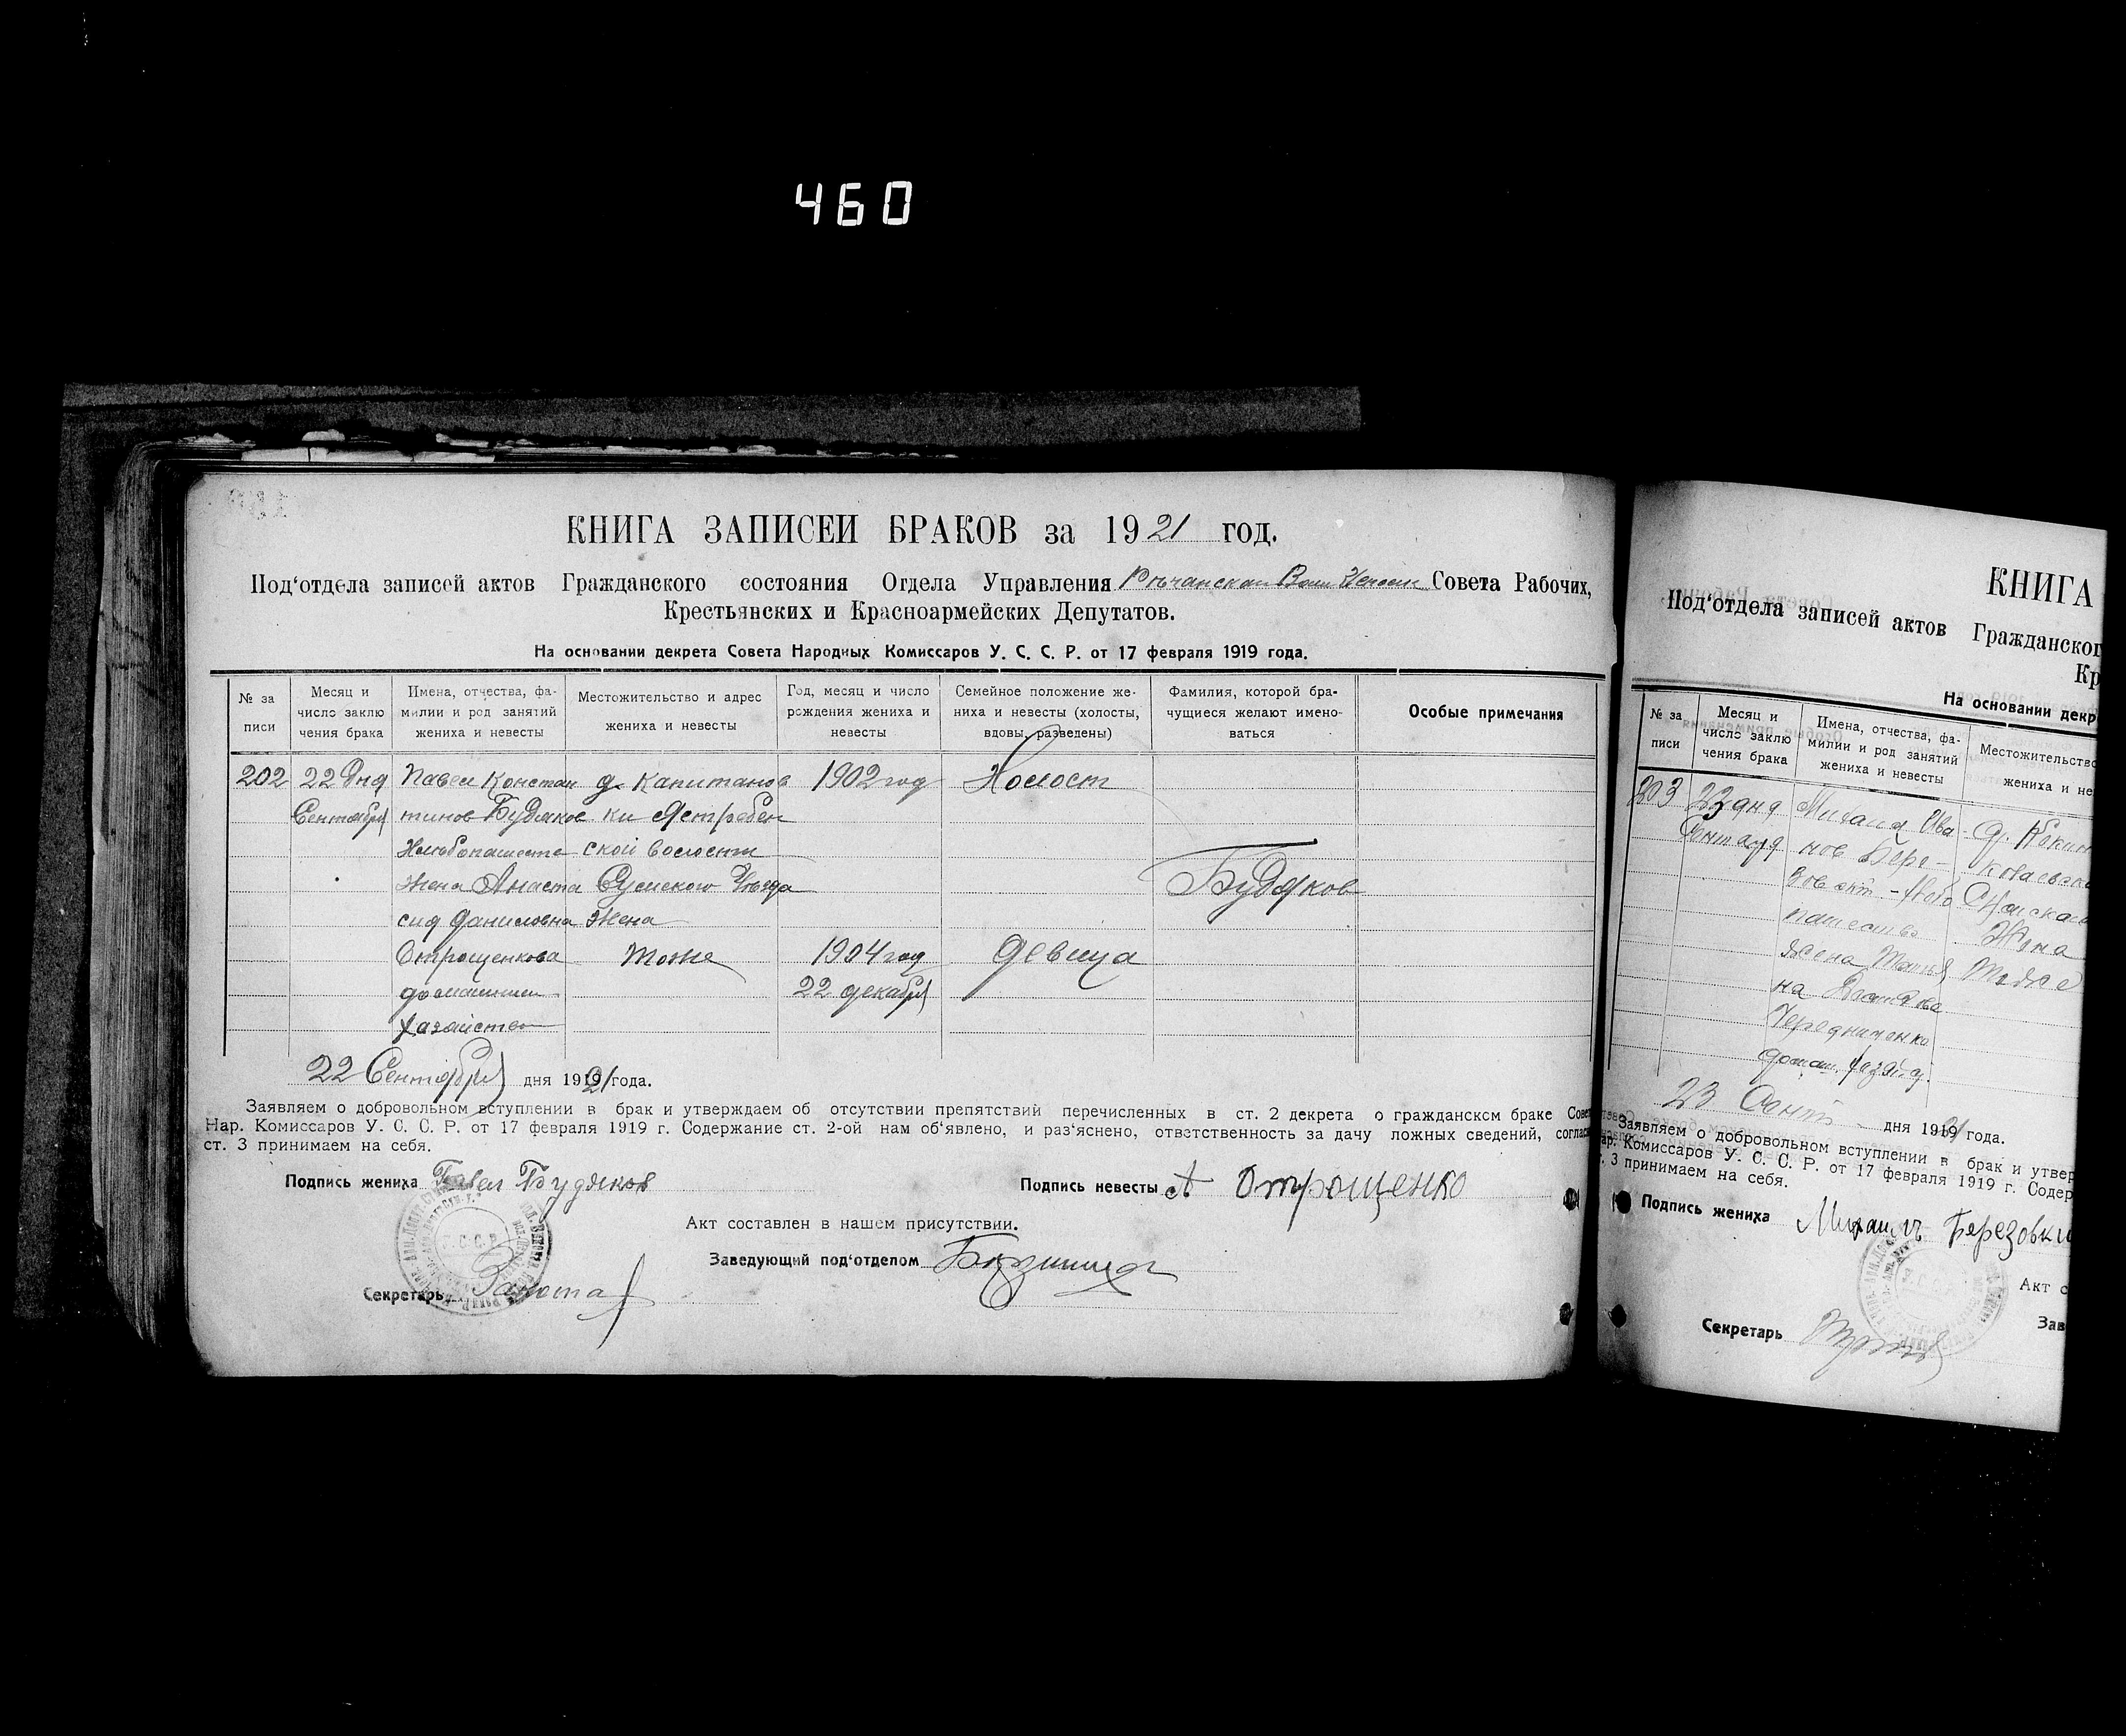 460
КНИГА ЗАПИСЕЙ БРАКОВ за 1921 год.
Под‘отдела записей актов Гражданского состояния Отдела Управления Речанская Совета Рабочих,
Крестьянских и Красноармейских Депутатов.
На основании декрета Совета Народных Комиссаров У. С. С. Р. от 17 февраля 1919 года.
№ за
писи
Месяц и
число заклю
чения брака
Имена, отчества, фа-
милии и род занятий
жениха и невесты
Местожительство и адрес
жениха и невесты
Год, месяц и число
рождения жениха и
невесты
Семейное положение же-
ниха и невесты (холосты,
вдовы, разведены)
Фамилия, которой бра-
чущиеся желают имено-
ваться
Особые примечания
202 22 дня Павел Констан д. Капитанов 1902 год Холост
Сентября тинов Будяков ки Ястребен
Хлебопашеств ской волости
жена Анаста Сумского Уезда Будяков
сия Даниловна Жена
Отрощенкова тоже 1904 год девица
домашнем 22 декабря
хазайстве
22 Сентября дня 1921 года.
Заявляем о добровольном вступлении в брак и утверждаем об отсутствии препятствий перечисленных в ст. 2 декрета о гражданском браке Совет
Нар. Комиссаров У. С. С. Р. от 17 февраля 1919 г. Содержание ст. 2-ой нам об‘явлено, и раз‘яснено, ответственность за дачу ложных сведений, соглас
ст. 3 принимаем на себя.
Подпись жениха Павел Будяков
Подпись невесты А Отрощенко
Акт составлен в нашем присутствии.
Заведующий под‘отделом
Секретарь
КНИГА
Под‘отдела записей актов Гражданског
Кр
На основании декр
№ за
писи
Месяц и
число заклю
чения брака
Имена, отчества, фа-
милии и род занятий
жениха и невесты
Местожительство
жениха и не
203 23 дня Михаил Ива- д.
нов Бере-
пашество Жена
жена тоже
на
Чередниченко
домаш. хазяйс.
23 Сент дня 1921 года.
Заявляем о добровольном вступлении в брак и утвер
Нар. Комиссаров У. С. С. Р. от 17 февраля 1919 г. Содер
ст. 3 принимаем на себя.
Подпись жениха Михаилъ Березовки
Акт с
Зав
Секретарь